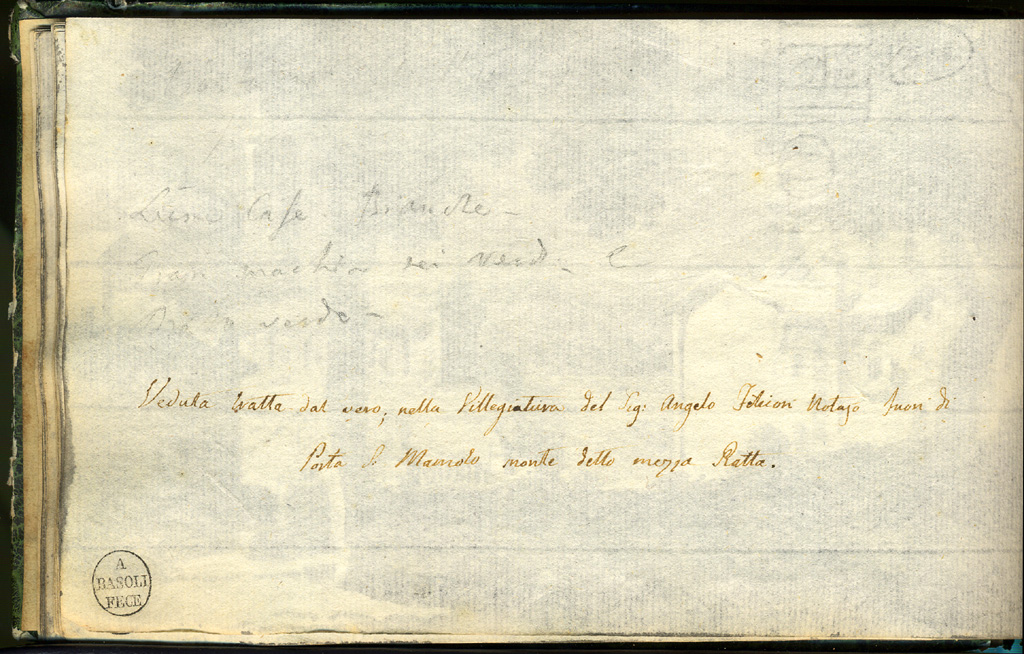 Case Bianche -
Gran machia dei verdi
verde -
Veduta tratta dal vero, nella Villegiatura del Sig: Angelo Felicori Notajo fuori di
Porta S. Mamolo monte detto mezza Ratta.
A
BASOLI
FECE